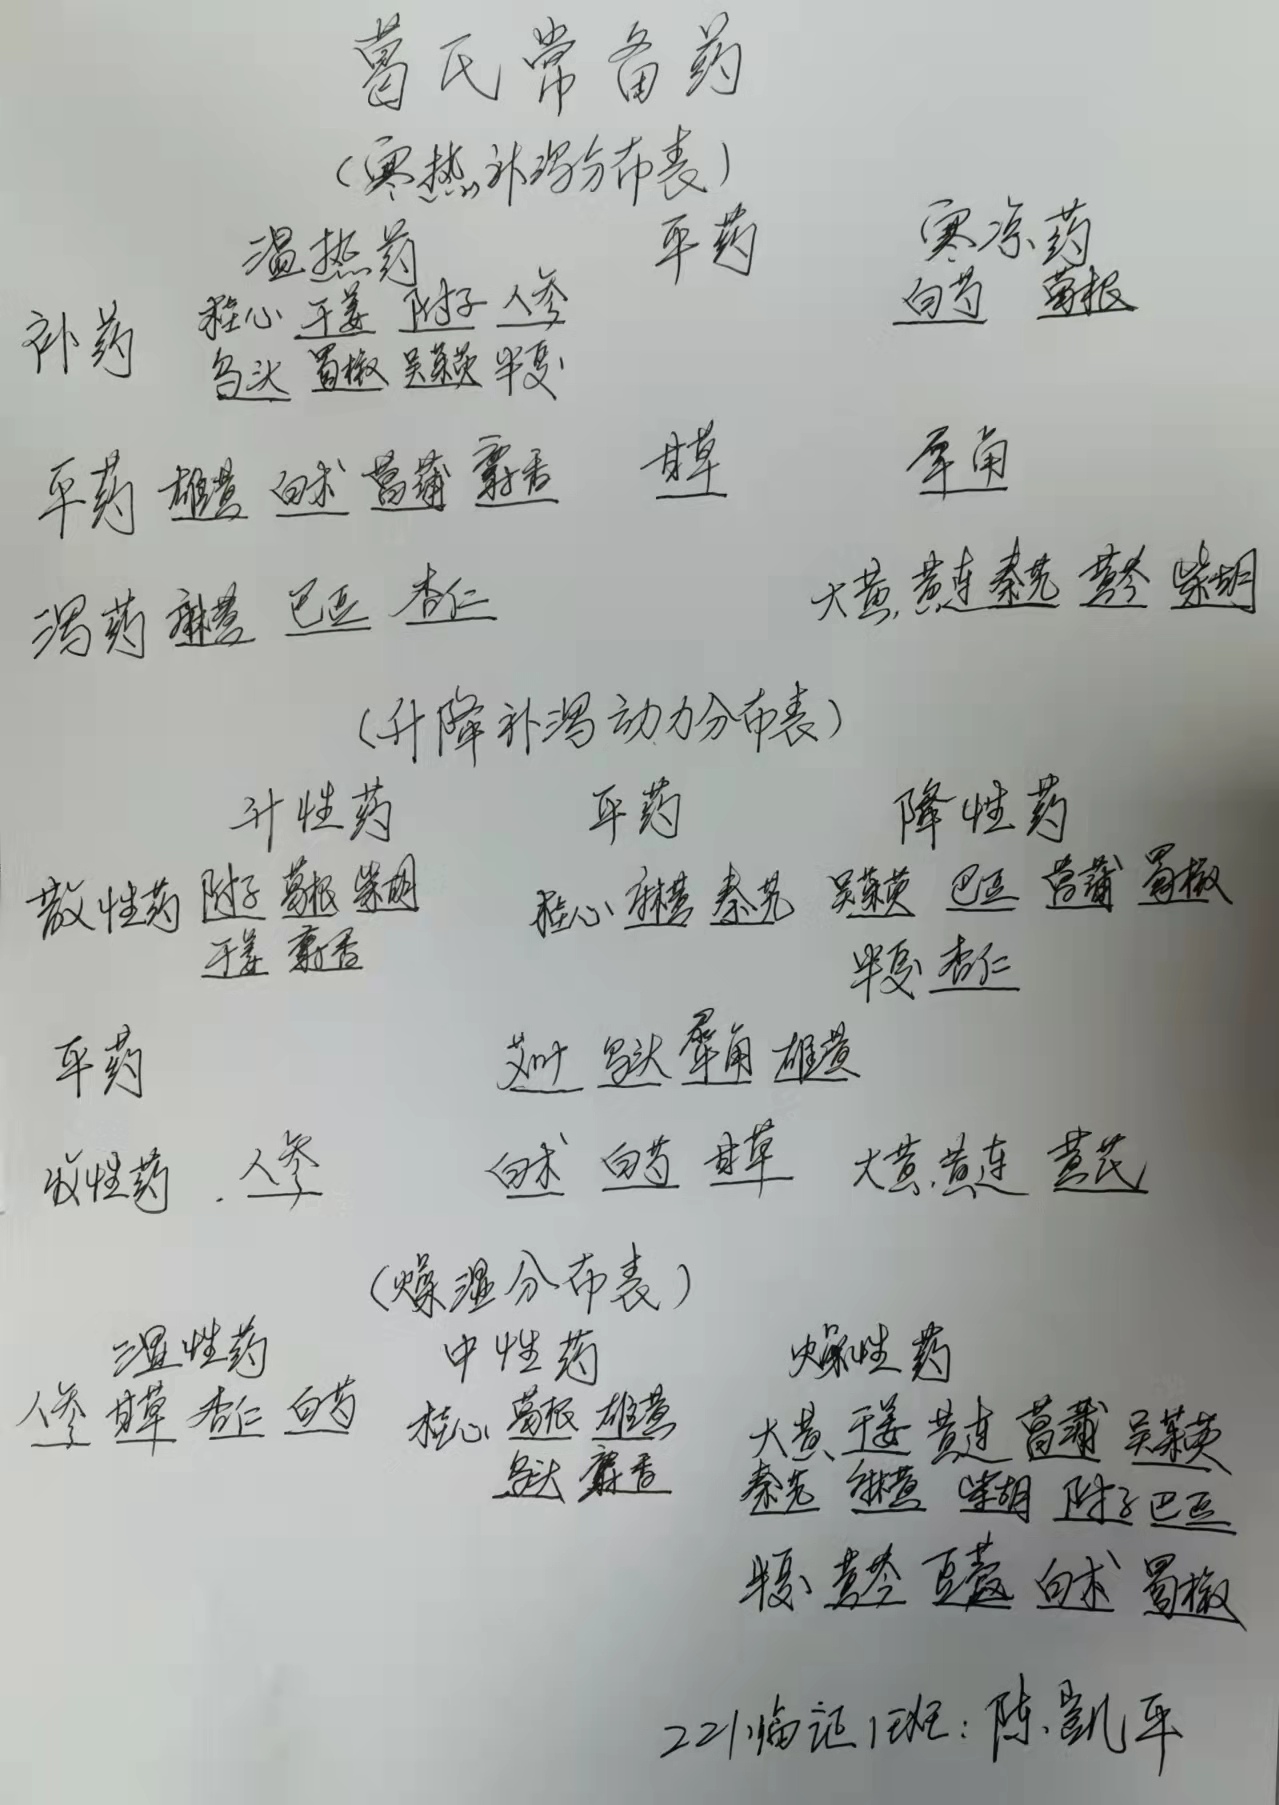 葛氏常备药
(寒热补泻分布表)
温热药 平药 寒凉药
补药 桂心 干姜 附子 人参 白芍 葛根
乌头 蜀椒 吴茱萸 半夏
平药 雄黄 白术 菖蒲 麝香 甘草 犀角
泻药 麻黄 巴豆 杏仁 大黄 黄连 秦艽 黄芩 柴胡
(升降补泻动力分布表)
升性药 平药 降性药
散性药 附子 葛根 柴胡 桂心 麻黄 秦艽 吴茱萸 巴豆 菖蒲 蜀椒
干姜 麝香 半夏 杏仁
平药 艾叶 乌头 犀角 雄黄
收性药 人参 白术 白芍 甘草 大黄 黄连 黄芪
(燥湿分布表)
湿性药 中性药 燥性药
人参 甘草 杏仁 白芍 桂心 葛根 雄黄 大黄 干姜 黄连 菖蒲 吴茱萸
乌头 麝香 秦艽 麻黄 柴胡 附子 巴豆
半夏 黄芩 豆蔻 白术 蜀椒
221临证1班:陈凯平